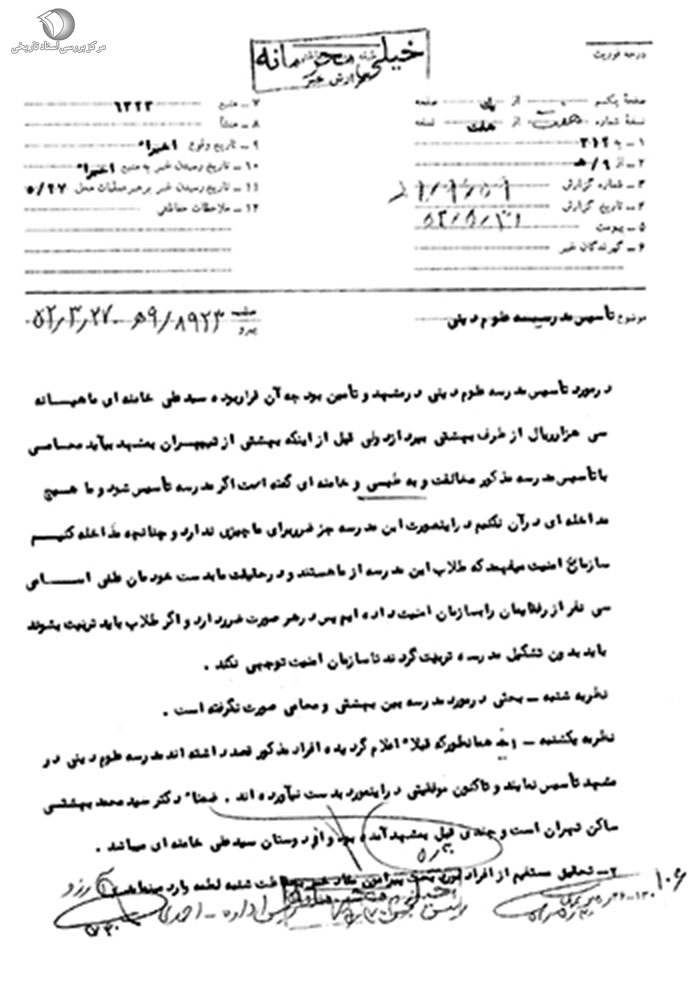 مرکز بررسی اسناد تاریخی
خیلی محرمانه
گزارش خبر
درجه فوریت
صفحهٔ یکم از صفحه
نسخهٔ شماره از هفت نسخه
۱ – به ۳۱۲
۲ – از ۹/ﻫ
۳ – شماره گزارش
۴ – تاریخ گزارش
۵ – پیوست
۶ – گیرندگان خبر
۷ – منبع ۶۳۲۳
۸ – منشأ
۹ – تاریخ وقوع اخیرا"
۱۰ – تاریخ رسیدن خبر به منبع اخیرا"
۱۱ – تاریخ رسیدن خبر به رهبر عملیات محل ۵/۲۷
۱۲ – ملاحظات حفاظتی
موضوع تأسیس مدرسه علوم دینی
پیرو ۸۹۲۳/۹ﻫ – ۵۲/۳/۲۷
درمورد تأسیس مدرسه علوم دینی درمشهد و تأمین بودجه آن قراربوده سیدعلی خامنه ای ماهیانه
سی هزارریال از طرف بهشتی بپردازد ولی قبل از اینکه بهشتی از تهران بمشهد بیاید محامی
با تأسیس مدرسه مذکور مخالفت و به طبسی و خامنه ای گفته است اگر مدرسه تأسیس شود و ما هیچ
مداخله ای درآن نکنیم دراینصورت این مدرسه جز ضرر برای ما چیزی ندارد و چنانچه مداخله کنیم
سازمان امنیت میفهمد که طلاب این مدرسه از ما هستند و درحقیقت ما بدست خودمان علنی اسامی
سی نفر از رفقایمان را بسازمان امنیت داده ایم پس درهر صورت ضرر دارد و اگر طلاب باید تربیت بشوند
باید بدون تشکیل مدرسه تربیت گردند تا سازمان امنیت توجهی نکند .
نظریه شنبه – بحثی درمورد مدرسه بین بهشتی و محامی صورت نگرفته است .
نظریه یکشنبه – همانطورکه قبلا" اعلام گردیده افراد مذکور قصد داشته اند مدرسه علوم دینی در
مشهد تأسیس نمایند و تاکنون موفقیتی دراینمورد بدست نیاورده اند . ضمنا" دکتر سید محمد بهشتی
ساکن تهران است و چندی قبل بمشهد آمده بود و از دوستان سیدعلی خامنه ای میباشد .
۲– تحقیق مستقیم از افراد مورد بحث پیرامون مفاد خبر بحفاظت شنبه لطمه وارد مینماید
خیلی محرمانه
۱۰۶